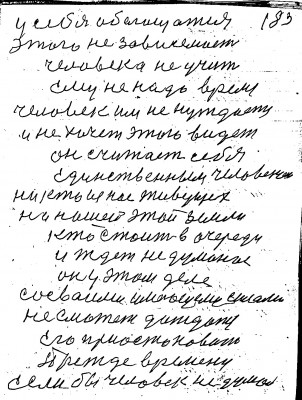 у себя обогощатся 183
этого не зависемаст
человека не учит
ему не надо время
человек им не нуждает
и не хочет этого видет
он считает себя
единственным человеком
никто ис нас живущих
на нашей этой земли
кто стоит в очереди
и ждет не думоное
он у этом деле
со своими имеющеми силами
не сможет дождат
его приостоновит
прежде времену
если бы человек не думал